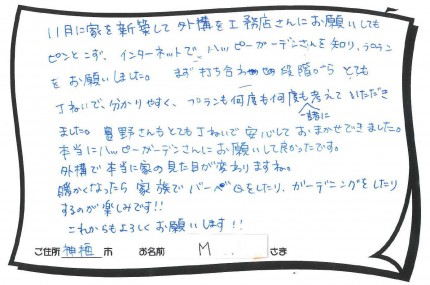 11月に家を新築して外構を工務店さんにお願いしても
ピンとこず、インターネットでハッピーガーデンさんを知り、プラン
をお願いしました。 まず打ち合わせの段階から とても
ていねいで、分かりやすく、プランも何度も何度も一緒に考えていただき
ました。 さんもとてもていねいで安心しておまかせできました。
本当にハッピーガーデンさんにお願いして良かったです。
外構で本当に家の見た目が変わりますね。
暖かくなったら 家族でバーベQをしたり、ガーデニングをしたり
するのが楽しみです!!
これからもよろしくお願いします!!
ご住所 神栖 市 お名前 M さま